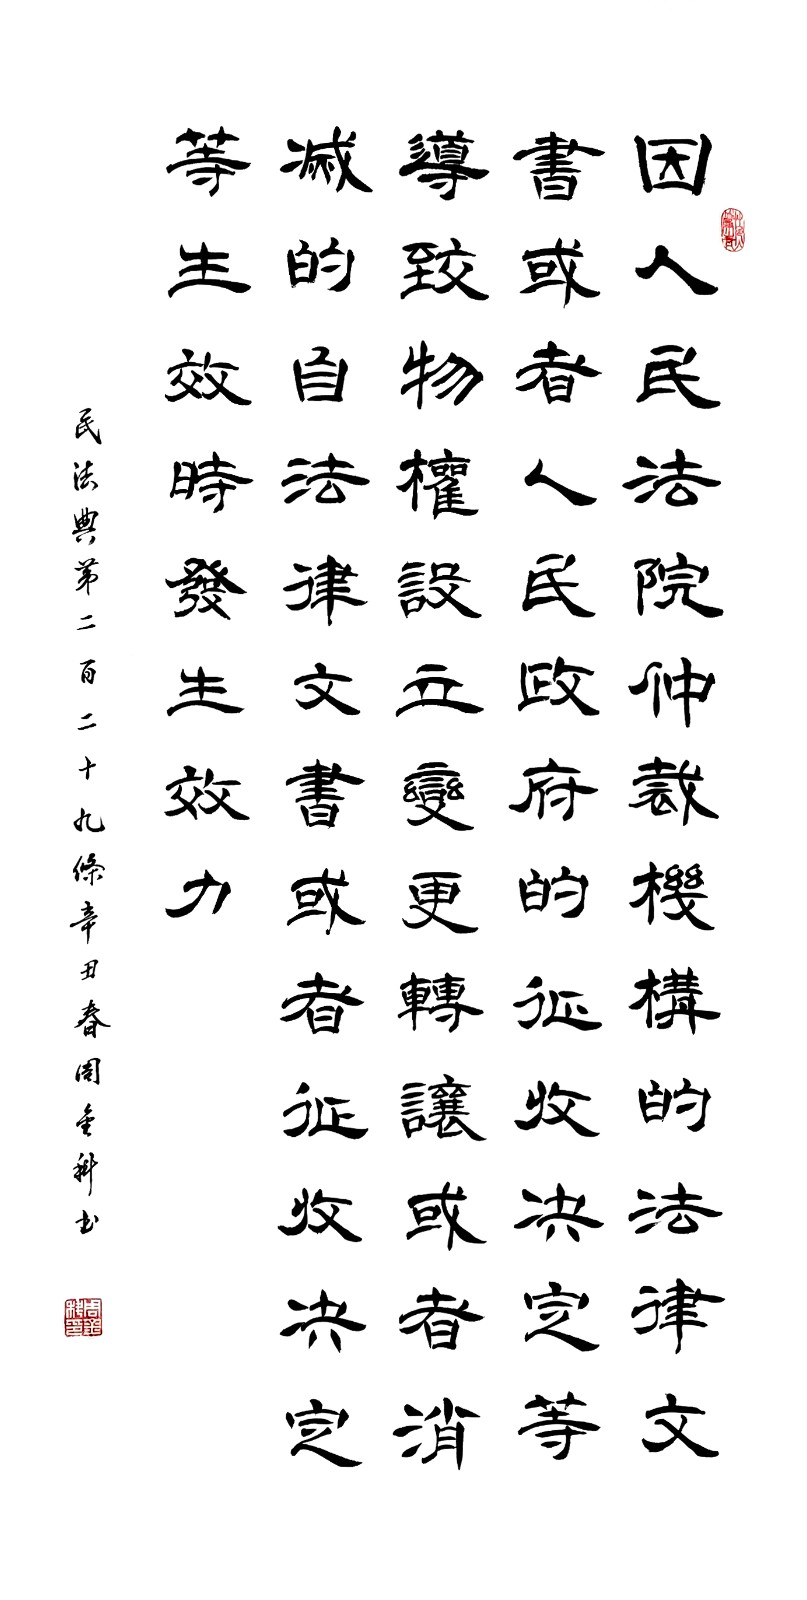 因人民法院仲裁機構的法律文
書或者人民政府的征收决定等
導致物權設立變更轉讓或者消
滅的自法律文書或者征收决定
等生效時發生效力
民法典第二百二十九條辛丑春周金科书